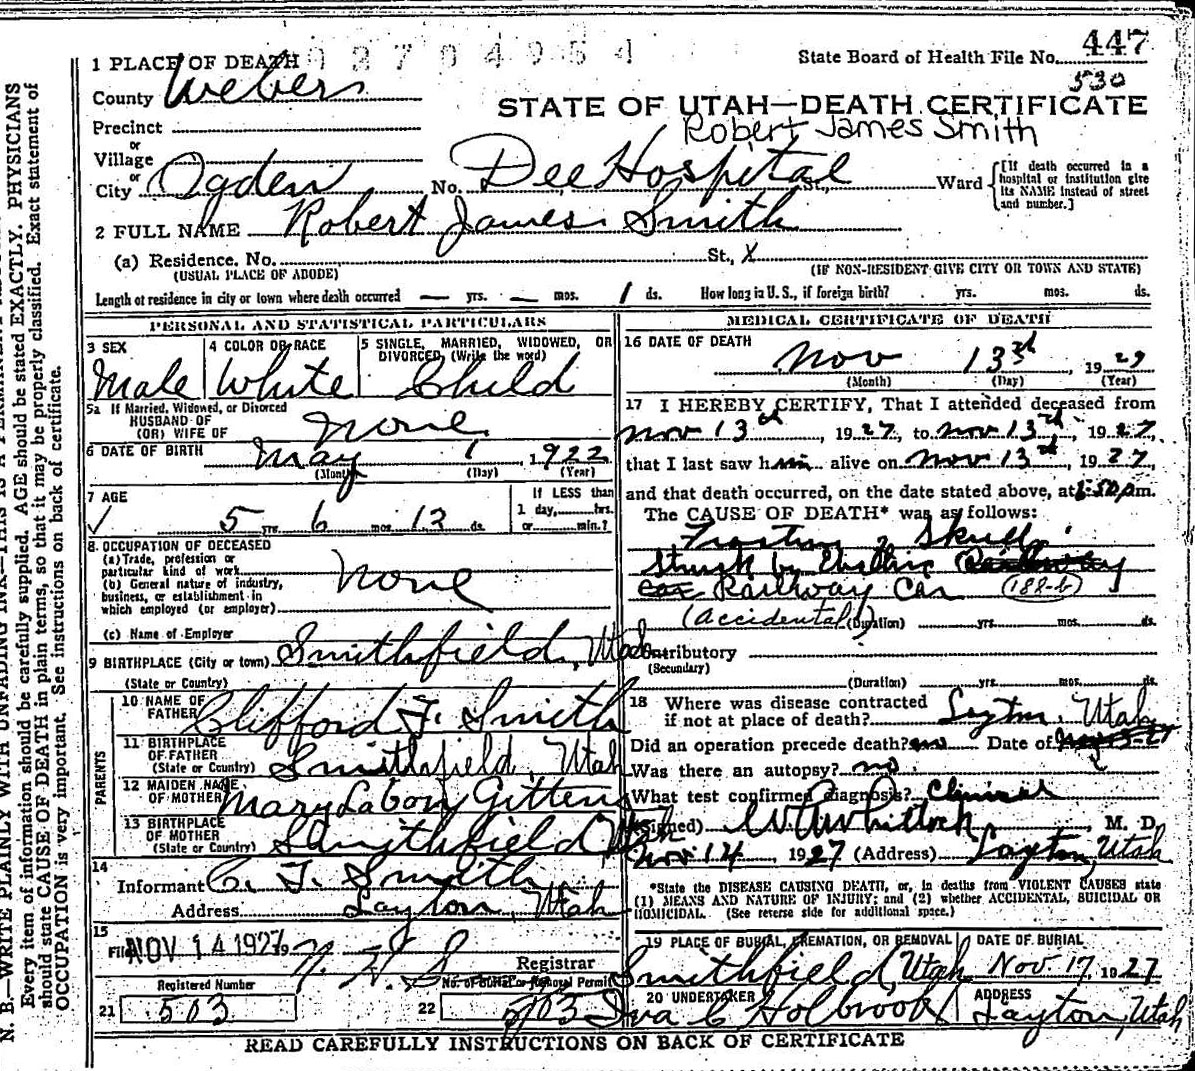 1 PLACE OF DEATH
State Board of Health File No. 447
530
County Weber
STATE OF UTAH—DEATH CERTIFICATE
Robert James Smith
Precinct
or
Village
or
City Ogden No. Dee Hospital St., Ward [If death occurred in a hospital or institution give its NAME instead of street and number.]
2 FULL NAME Robert James Smith
(a) Residence. No. St., X
(USUAL PLACE OF ABODE) (IF NON-RESIDENT GIVE CITY OR TOWN AND STATE)
Length of residence in city or town where death occurred — yrs. — mos. 1 ds. How long in U. S., if foreign birth? yrs. mos. ds.
PERSONAL AND STATISTICAL PARTICULARS
3 SEX 4 COLOR OR RACE 5 SINGLE, MARRIED, WIDOWED, OR DIVORCED (Write the word)
Male White Child
5a If Married, Widowed, or Divorced
HUSBAND OF
(OR) WIFE OF None
6 DATE OF BIRTH May 1, 1922
(Month) (Day) (Year)
7 AGE If LESS than
1 day, hrs.
5 yrs. 6 mos. 12 ds. or min.?
8. OCCUPATION OF DECEASED
(a) Trade, profession or
particular kind of work
(b) General nature of industry,
business, or establishment in
which employed (or employer) None
(c) Name of Employer
9 BIRTHPLACE (City or town) Smithfield, Utah
(State or Country)
PARENTS
10 NAME OF
FATHER Clifford F. Smith
11 BIRTHPLACE
OF FATHER
(State or Country) Smithfield, Utah
12 MAIDEN NAME
OF MOTHER Mary Gittens
13 BIRTHPLACE
OF MOTHER
(State or Country) Smithfield Utah
14
Informant C. F. Smith
Address Layton, Utah
15
Filed NOV 14 1927
Registrar
Registered Number No. of Burial or Removal Permit
21 503 22 503
MEDICAL CERTIFICATE OF DEATH
16 DATE OF DEATH
Nov 13th, 1927
(Month) (Day) (Year)
17 I HEREBY CERTIFY, That I attended deceased from
Nov 13th, 1927, to Nov 13th, 1927,
that I last saw him alive on Nov 13th, 1927,
and that death occurred, on the date stated above, at m.
The CAUSE OF DEATH* was as follows:
Skull
Struck by Electric
Railway Car (188-b)
(Accidental) (Duration) yrs. mos. ds.
Contributory
(Secondary)
(Duration) yrs. mos. ds.
18 Where was disease contracted
if not at place of death? Layton, Utah
Did an operation precede death? no Date of
Was there an autopsy? no.
What test confirmed diagnosis? Clinical
(Signed) Whitlock, M. D.
Nov 14, 1927 (Address) Layton, Utah
*State the DISEASE CAUSING DEATH, or, in deaths from VIOLENT CAUSES state
(1) MEANS AND NATURE OF INJURY; and (2) whether ACCIDENTAL, SUICIDAL OR
HOMICIDAL. (See reverse side for additional space.)
19 PLACE OF BURIAL, CREMATION, OR REMOVAL DATE OF BURIAL
Smithfield, Utah Nov 17, 1927
20 UNDERTAKER ADDRESS
Iva C Holbrook Layton, Utah
READ CAREFULLY INSTRUCTIONS ON BACK OF CERTIFICATE
Every item of information should be carefully supplied. AGE should be stated EXACTLY. PHYSICIANS
should state CAUSE OF DEATH in plain terms, so that it may be properly classified. Exact statement of
OCCUPATION is very important. See instructions on back of certificate.